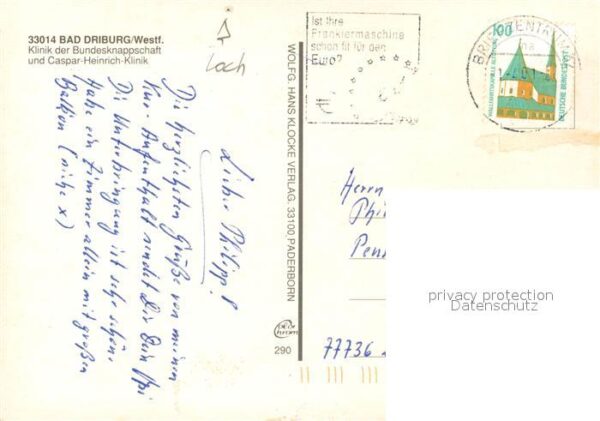 33014 BAD DRIBURG/Westf.
Klinik der Bundesknappschaft
und Caspar-Heinrich-Klinik
Loch
Lieber Philipp!
Die herzlichsten Grüße von meinem
Kur-Aufenthalt sendet Dir Dein Opi
Die Unterbringung ist sehr schön.
Habe ein Zimmer allein mit großen
Balkon (siehe x)
WOLFG. HANS KLOCKE VERLAG. 33100 PADERBORN
290
Ist Ihre
Frankiermaschine
schon fit für den
Euro?
BRIEFZENTRUM
100
DEUTSCHE BUNDESPOST
WALLFAHRTSKAPELLE ALTÖTTING
Herrn
Phi
Pen
77736
privacy protection
Datenschutz